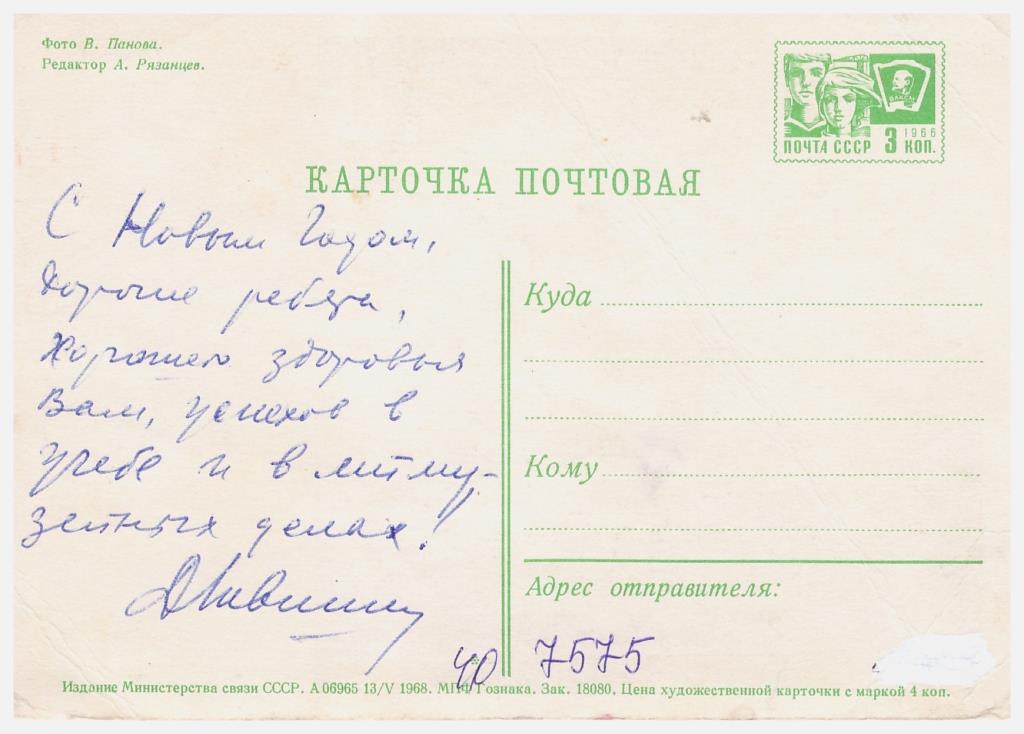 Фото В. Панова.
Редактор А. Рязанцев.
ВЛКСМ
1966
ПОЧТА СССР 3 КОП.
КАРТОЧКА ПОЧТОВАЯ
С Новым Годом,
Дорогие ребята,
Хорошего здоровья
Вам, успехов в
учебе и в литму-
зейных делах!
Куда
Кому
Адрес отправителя:
40 7575
Издание Министерства связи СССР. А 06965 13/V 1968. МПФ Гознака. Зак. 18080. Цена художественной карточки с маркой 4 коп.